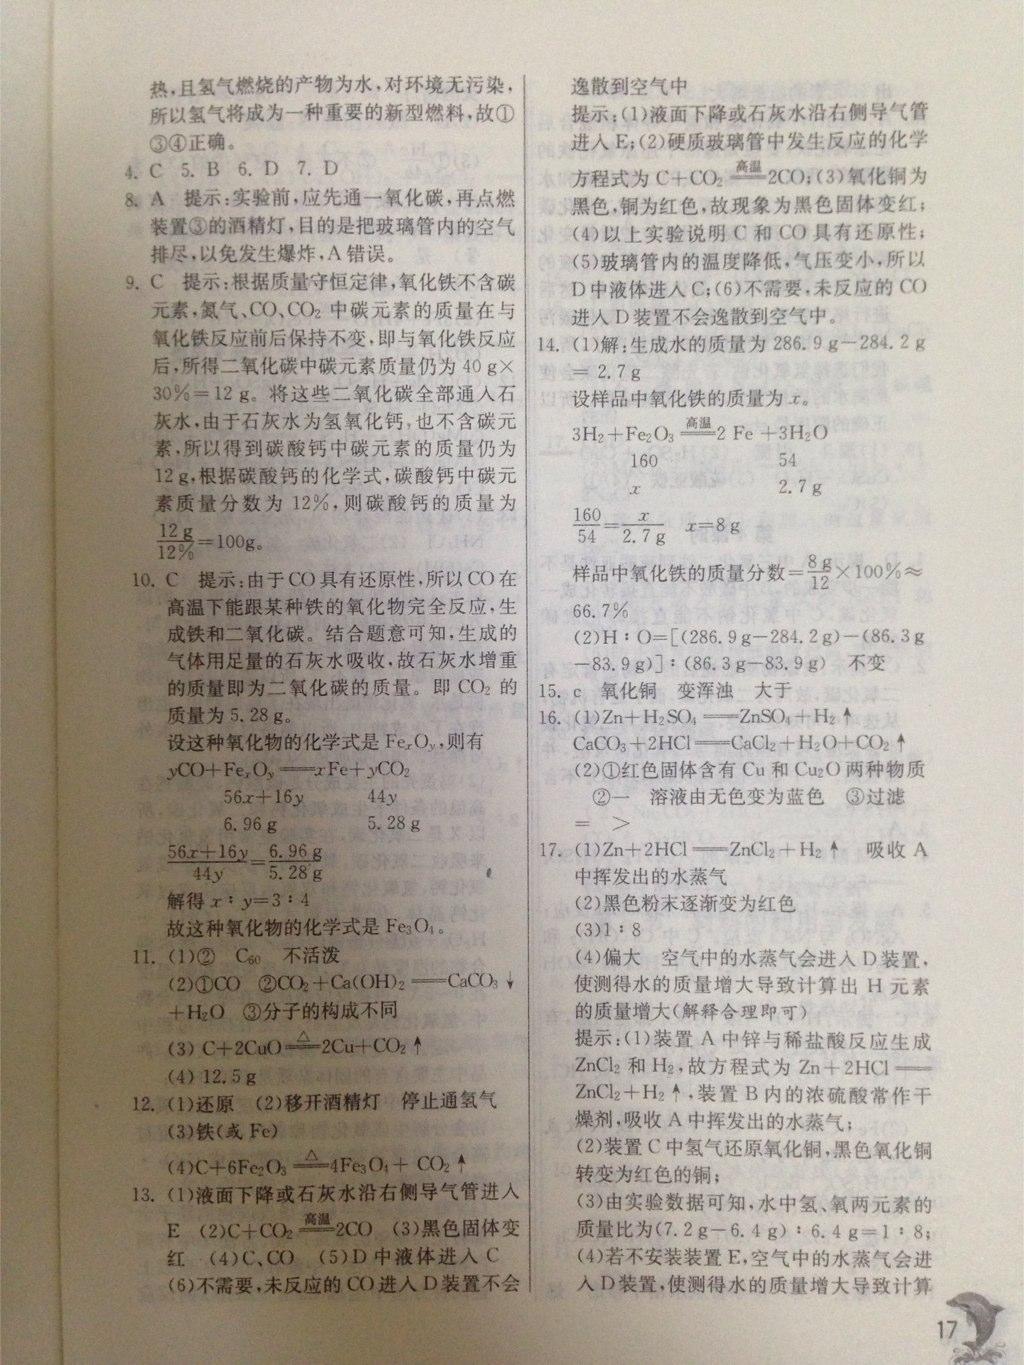 热,且氢气燃烧的产物为水,对环境无污染,
所以氢气将成为一种重要的新型燃料,故①
③④正确。
4. C 5. B 6. D 7. D
8. A 提示:实验前,应先通一氧化碳,再点燃
装置③的酒精灯,目的是把玻璃管内的空气
排尽,以免发生爆炸,A错误。
9. C 提示:根据质量守恒定律,氧化铁不含碳
元素,氮气、CO、CO₂ 中碳元素的质量在与
氧化铁反应前后保持不变,即与氧化铁反应
后,所得二氧化碳中碳元素质量仍为 40 g×
30%=12 g。将这些二氧化碳全部通入石
灰水,由于石灰水为氢氧化钙,也不含碳元
素,所以得到碳酸钙中碳元素的质量仍为
12 g,根据碳酸钙的化学式,碳酸钙中碳元
素质量分数为 12%,则碳酸钙的质量为
12 g/12%=100g。
10. C 提示:由于CO具有还原性,所以CO在
高温下能跟某种铁的氧化物完全反应,生
成铁和二氧化碳。结合题意可知,生成的
气体用足量的石灰水吸收,故石灰水增重
的质量即为二氧化碳的质量。即 CO₂ 的
质量为5.28 g。
设这种氧化物的化学式是 FeₓOᵧ,则有
yCO+FeₓOᵧ══xFe+yCO₂
56x+16y 44y
6.96 g 5.28 g
(56x+16y)/44y=6.96 g/5.28 g
解得 x∶y=3∶4
故这种氧化物的化学式是 Fe₃O₄。
11. (1)② C₆₀ 不活泼
(2)①CO ②CO₂+Ca(OH)₂══CaCO₃↓
+H₂O ③分子的构成不同
(3) C+2CuO═△═2Cu+CO₂↑
(4) 12.5 g
12. (1)还原 (2)移开酒精灯 停止通氢气
(3)铁(或 Fe)
(4)C+6Fe₂O₃═△═4Fe₃O₄+ CO₂↑
13. (1)液面下降或石灰水沿右侧导气管进入
E (2)C+CO₂═高温═2CO (3)黑色固体变
红 (4)C、CO (5)D中液体进入 C
(6)不需要,未反应的CO进入D装置不会
逸散到空气中
提示:(1)液面下降或石灰水沿右侧导气管
进入E;(2)硬质玻璃管中发生反应的化学
方程式为 C+CO₂═高温═2CO;(3)氧化铜为
黑色,铜为红色,故现象为黑色固体变红;
(4)以上实验说明 C 和 CO 具有还原性;
(5)玻璃管内的温度降低,气压变小,所以
D中液体进入C;(6)不需要,未反应的 CO
进入D装置不会逸散到空气中。
14. (1)解:生成水的质量为 286.9 g−284.2 g
= 2.7 g
设样品中氧化铁的质量为 x。
3H₂+Fe₂O₃═高温═2 Fe +3H₂O
160 54
x 2.7 g
160/54=x/2.7 g x=8 g
样品中氧化铁的质量分数=8 g/12×100%≈
66.7%
(2)H∶O=[(286.9 g−284.2 g)−(86.3 g
−83.9 g)]∶(86.3 g−83.9 g) 不变
15. c 氧化铜 变浑浊 大于
16. (1)Zn+H₂SO₄══ZnSO₄+H₂↑
CaCO₃+2HCl══CaCl₂+H₂O+CO₂↑
(2)①红色固体含有 Cu 和 Cu₂O 两种物质
②一 溶液由无色变为蓝色 ③过滤
= >
17. (1)Zn+2HCl══ZnCl₂+H₂↑ 吸收 A
中挥发出的水蒸气
(2)黑色粉末逐渐变为红色
(3)1∶8
(4)偏大 空气中的水蒸气会进入D装置,
使测得水的质量增大导致计算出 H 元素
的质量增大(解释合理即可)
提示:(1)装置 A 中锌与稀盐酸反应生成
ZnCl₂ 和 H₂,故方程式为 Zn+2HCl══
ZnCl₂+H₂↑,装置 B 内的浓硫酸常作干
燥剂,吸收 A 中挥发出的水蒸气;
(2)装置 C 中氢气还原氧化铜,黑色氧化铜
转变为红色的铜;
(3)由实验数据可知,水中氢、氧两元素的
质量比为(7.2 g−6.4 g)∶6.4 g=1∶8;
(4)若不安装装置E,空气中的水蒸气会进
入D装置,使测得水的质量增大导致计算
17